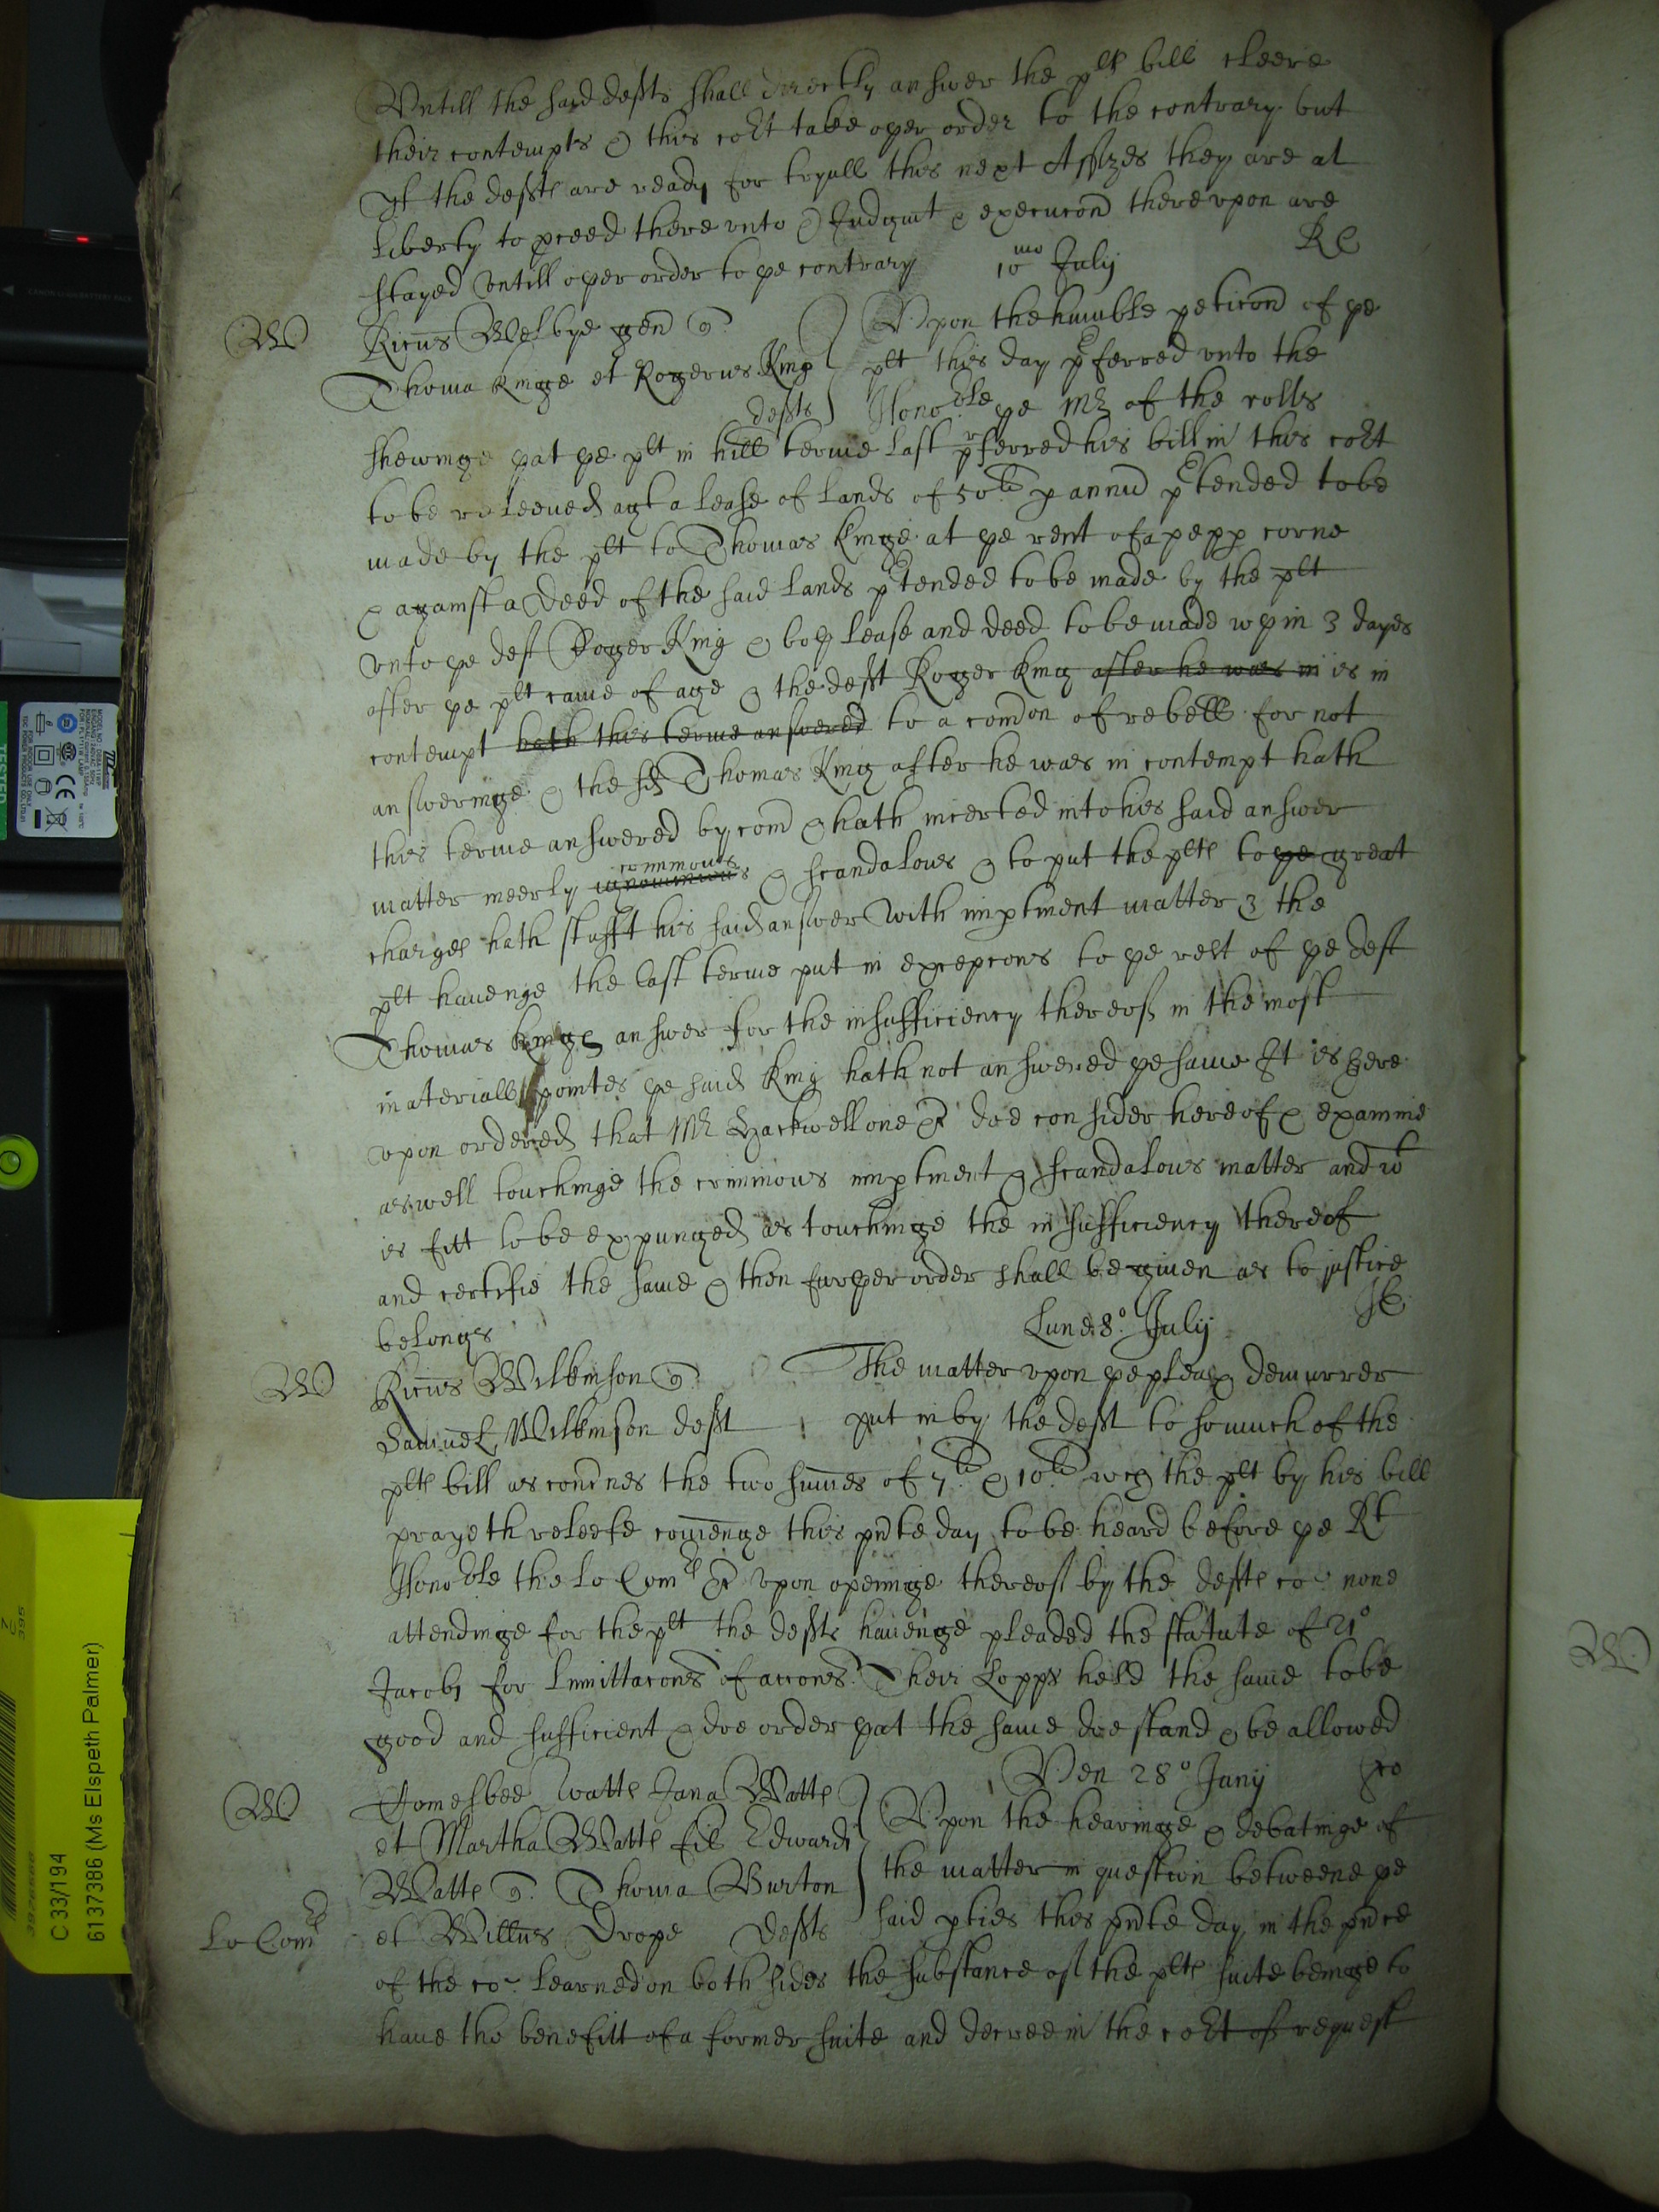 Untill the said defts shall directly answer the plts bill cleere
their contempts & this cort take oyer order to the contrary but
yf the defts are ready for tryall this next Assizes they are at
liberty to pceed there unto & Judgmt & execucon thereupon are
stayed untill oyer order to ye contrary
RC
10mo July
W
Ricus Welbye gen q
Thoma Kinge et Rogerus King
defts
Upon the humble peticon of ye
plt this day pferred unto the
Honoble ye Mr of the rolls
shewinge yat ye plt in hill terme last pferred his bill in this cort
to be releeved agt a lease of lands of 50li p annu ptended to be
made by the plt to Thomas Kinge at ye rent of a pepp corne
& against a deed of the said lands ptended to be made by the plt
unto ye deft Roger King & boy lease and deed to be made wyin 3 dayes
after ye plt came of age & the deft Roger King after he was in is in
contempt hath this terme answered to a comon of rebell for not
answeringe & the sd Thomas King after he was in contempt hath
this terme answered by com & hath incerted into his said answer
matter meerly ignominious criminous & scandalous & to put the plts to ye great
charges hath stufft his said answer with imptinent matter & the
plt havenge the last terme put in excepcons to ye rest of ye deft
Thomas Kinges answer for the insufficiency thereof in the most
materiall pointes ye said King hath not answered ye same It is here
upon ordered that Mr Hackwell one &c doe consider hereof & examine
aswell touchinge the criminous imptinent & scandalous matter and wt
is fitt to be expunged as touchinge the insufficiency thereof
and certifie the same & then furyer order shall be given as to justice
belongs
Lune 8o July
W
Ricus Wilkinson q
Samuel Wilkinson deft
The matter upon ye plea & demurrer
put in by the deft to somuch of the
plts bill as concnes the two sumes of 7li & 10li wch the plt by his bill
prayeth releefe comenge this pnte day to be heard before ye Rt
Honoble the Lo Comrs &c upon openinge thereof by the defts co: none
attendinge for the plt the defts havenge pleaded the statute of 21o
Jacobi for limittacons of accons Their Lopps held the same to be
good and sufficient & doe order yat the same doe stand & be allowed
Ven 28o Junij
W
Watts Jana Watts
et Martha Watts fil Edwardi
Watts q. Thoma Burton
et Willus Drope defts
Lo Comrs
Upon the hearinge & debatinge of
the matter in question betweene ye
said pties this pnte day in the pnce
of the co: learned on both sides the substance of the plts suite beinge to
have the benefitt of a former suite and decree in the cort of request
C 33/194
6137386 (Ms Elspeth Palmer)
TESTED